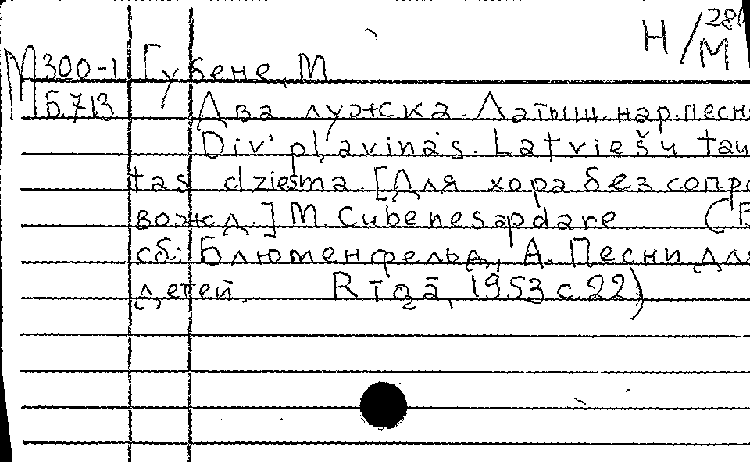 Н/280
М
М 300-1 Губене, М
Б.713 Два лужска. Латыш. нар. песн
Div' pļavinas. Latviešu tau
tas dziesma. [Для хора без сопро
вожд.] M. Cubenes apdare (В
сб: Блюменфельд, А. Песни для
детей. Rīgā, 1953 с 22)